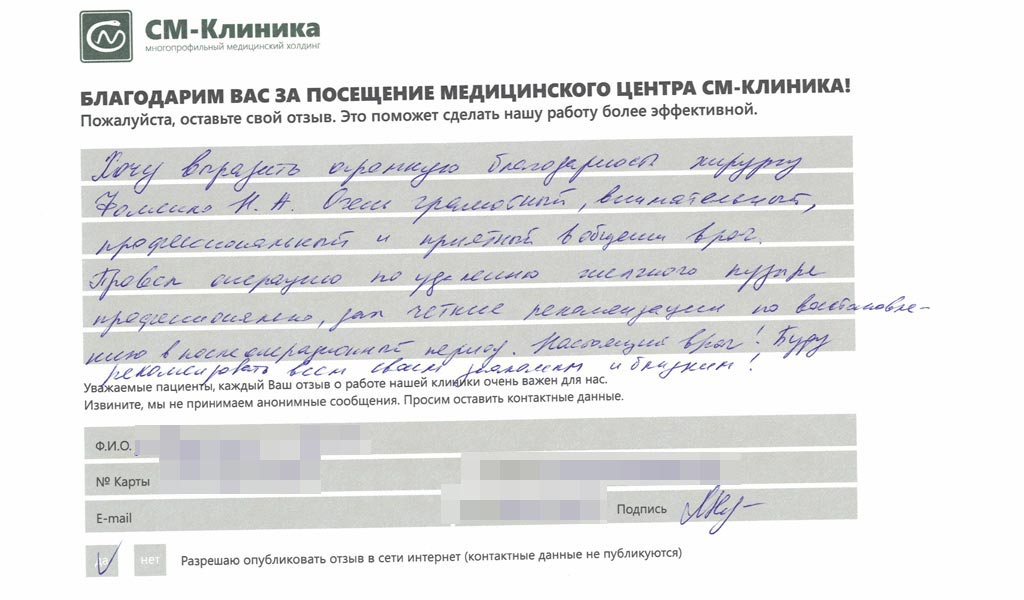 СМ-Клиника
многопрофильный медицинский холдинг
БЛАГОДАРИМ ВАС ЗА ПОСЕЩЕНИЕ МЕДИЦИНСКОГО ЦЕНТРА СМ-КЛИНИКА!
Пожалуйста, оставьте свой отзыв. Это поможет сделать нашу работу более эффективной.
Хочу выразить огромную благодарность хирургу
Н. А. Очень грамотный, внимательный,
профессиональный и приятный в общении врач.
Провел операцию по удалению желчного пузыря
профессионально, дал четкие рекомендации по восстановле-
нию в послеоперационный период. Настоящий врач! Буду
рекомендовать всем своим знакомым и близким!
Уважаемые пациенты, каждый Ваш отзыв о работе нашей клиники очень важен для нас.
Извините, мы не принимаем анонимные сообщения. Просим оставить контактные данные.
Ф.И.О.
№ Карты
E-mail
Подпись
да нет Разрешаю опубликовать отзыв в сети интернет (контактные данные не публикуются)